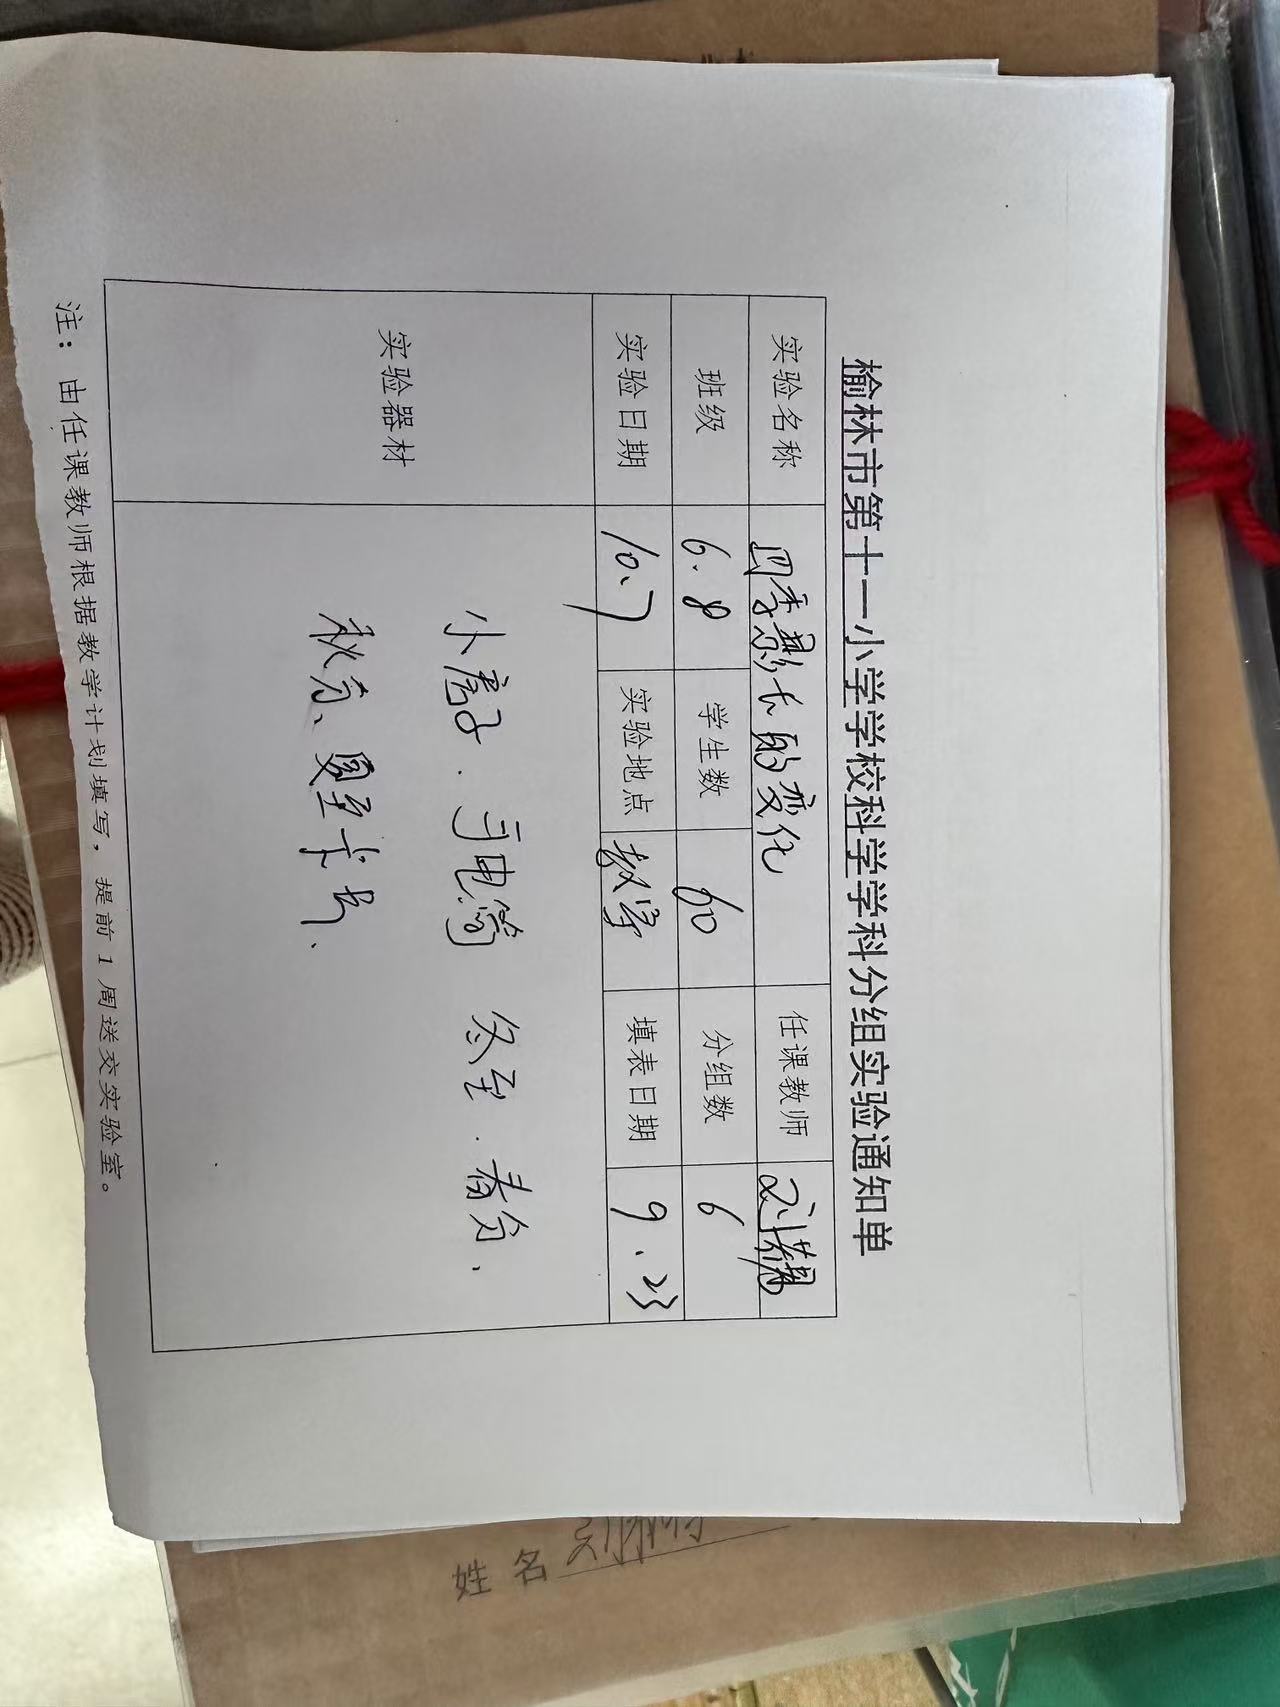 榆林市第十一小学学校科学学科分组实验通知单
实验名称 四季影长的变化 任课教师
班级 6.8 学生数 60 分组数 6
实验日期 10.7 实验地点 教学 填表日期 9.23
实验器材
小房子. 手电筒 冬至. 春分、
秋分、夏至卡片、
注：由任课教师根据教学计划填写，提前1周送交实验室。
姓名